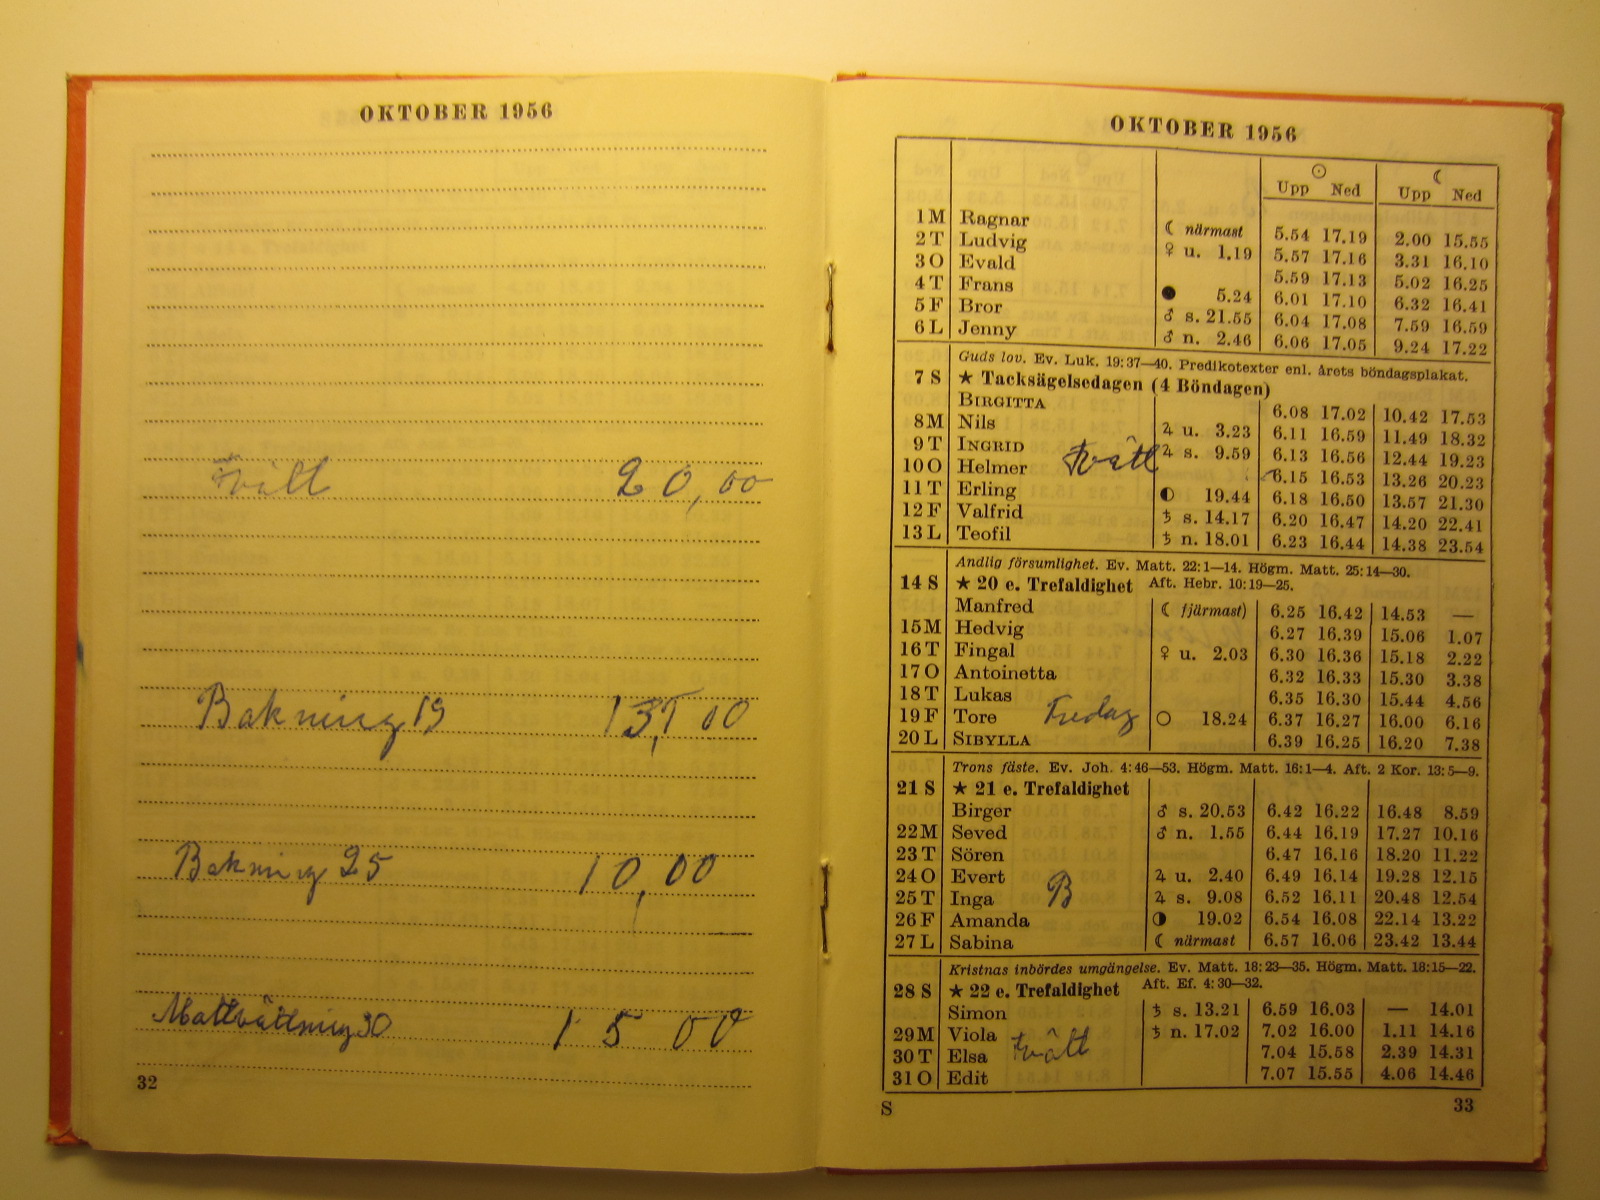 OKTOBER 1956
Tvätt 20,00
Bakning 19 13,00
Bakning 25 10,00
Mattvättning 30 15 00
32
OKTOBER 1956
☉ ☾
Upp Ned Upp Ned
1 M Ragnar ☾ närmast 5.54 17.19 2.00 15.55
2 T Ludvig ♀ u. 1.19 5.57 17.16 3.31 16.10
3 O Evald 5.59 17.13 5.02 16.25
4 T Frans ● 5.24 6.01 17.10 6.32 16.41
5 F Bror ♂ s. 21.55 6.04 17.08 7.59 16.59
6 L Jenny ♂ n. 2.46 6.06 17.05 9.24 17.22
Guds lov. Ev. Luk. 19:37—40. Predikotexter enl. årets böndagsplakat.
7 S ★ Tacksägelsedagen (4 Böndagen)
BIRGITTA 6.08 17.02 10.42 17.53
8 M Nils ♃ u. 3.23 6.11 16.59 11.49 18.32
9 T INGRID ♃ s. 9.59 6.13 16.56 12.44 19.23
10 O Helmer Tvätt 6.15 16.53 13.26 20.23
11 T Erling ◐ 19.44 6.18 16.50 13.57 21.30
12 F Valfrid ♄ s. 14.17 6.20 16.47 14.20 22.41
13 L Teofil ♄ n. 18.01 6.23 16.44 14.38 23.54
Andlig försumlighet. Ev. Matt. 22:1—14. Högm. Matt. 25:14—30.
14 S ★ 20 e. Trefaldighet Aft. Hebr. 10:19—25.
Manfred ☾ fjärmast) 6.25 16.42 14.53 —
15 M Hedvig 6.27 16.39 15.06 1.07
16 T Fingal ♀ u. 2.03 6.30 16.36 15.18 2.22
17 O Antoinetta 6.32 16.33 15.30 3.38
18 T Lukas 6.35 16.30 15.44 4.56
19 F Tore Fredag ○ 18.24 6.37 16.27 16.00 6.16
20 L SIBYLLA 6.39 16.25 16.20 7.38
Trons fäste. Ev. Joh. 4:46—53. Högm. Matt. 16:1—4. Aft. 2 Kor. 13:5—9.
21 S ★ 21 e. Trefaldighet
Birger ♂ s. 20.53 6.42 16.22 16.48 8.59
22 M Seved ♂ n. 1.55 6.44 16.19 17.27 10.16
23 T Sören 6.47 16.16 18.20 11.22
24 O Evert ♃ u. 2.40 6.49 16.14 19.28 12.15
25 T Inga B ♃ s. 9.08 6.52 16.11 20.48 12.54
26 F Amanda ◑ 19.02 6.54 16.08 22.14 13.22
27 L Sabina ☾ närmast 6.57 16.06 23.42 13.44
Kristnas inbördes umgängelse. Ev. Matt. 18:23—35. Högm. Matt. 18:15—22.
28 S ★ 22 e. Trefaldighet Aft. Ef. 4:30—32.
Simon ♄ s. 13.21 6.59 16.03 — 14.01
29 M Viola ♄ n. 17.02 7.02 16.00 1.11 14.16
30 T Elsa tvätt 7.04 15.58 2.39 14.31
31 O Edit 7.07 15.55 4.06 14.46
S 33